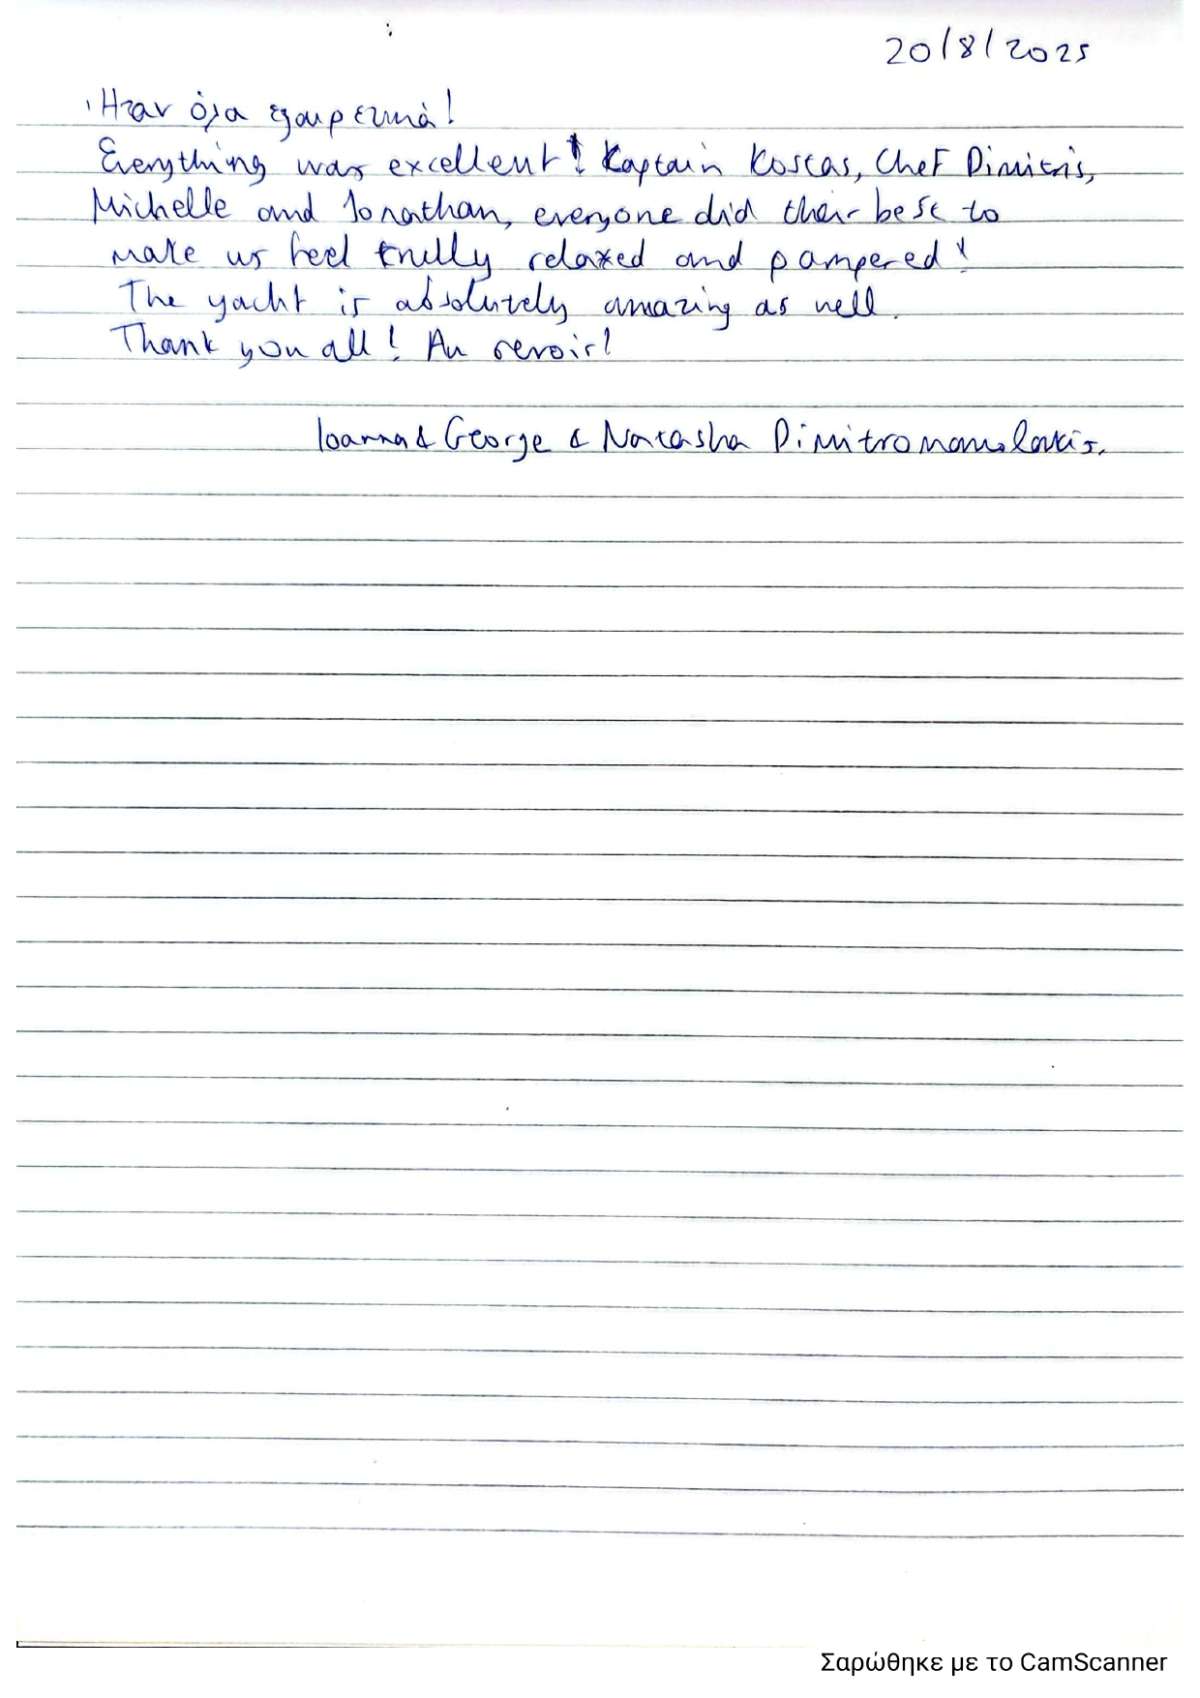 20/8/2025
Ήταν όλα εξαιρετικά!
Everything was excellent! Kaptain Kostas, Chef Dimitris,
Michelle and Jonathan, everyone did their best to
make us feel trully relaxed and pampered!
The yacht is absolutely amazing as well.
Thank you all! Au revoir!
Ioanna & George & Natasha Dimitromanolakis.
Σαρώθηκε με το CamScanner